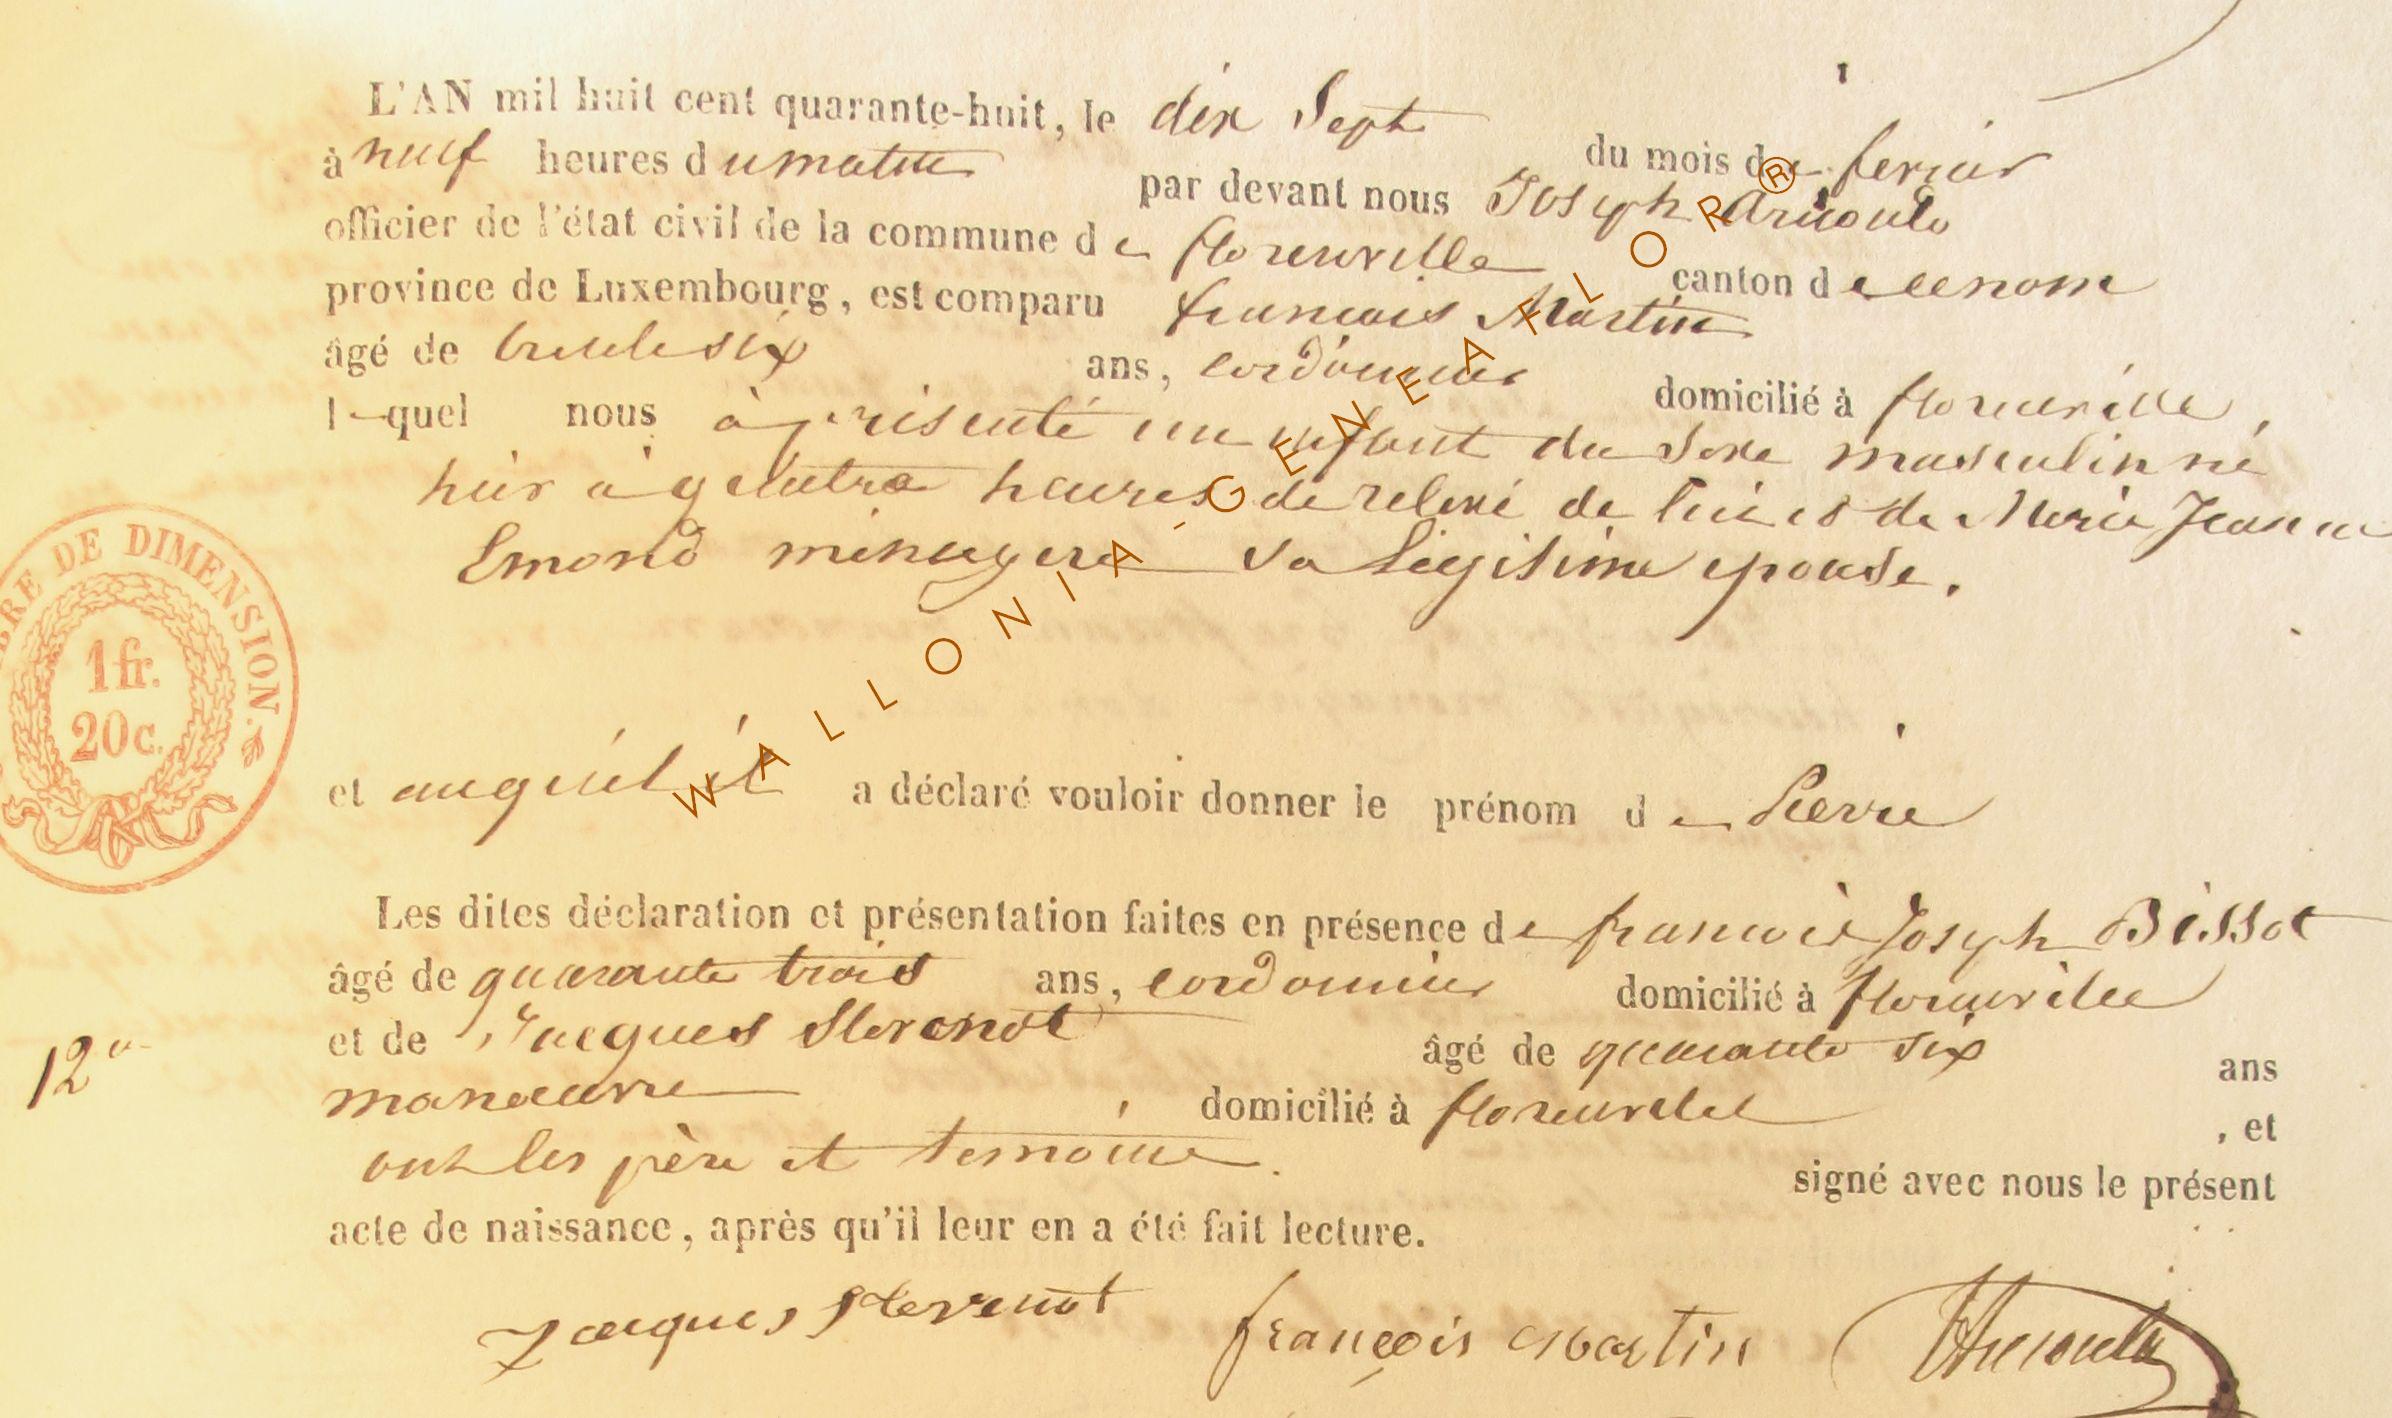 L'AN mil huit cent quarante-huit, le dix Sept du mois de ferrier
à neuf heures du matin par devant nous Joseph Arnould
officier de l'état civil de la commune de florenville canton de
province de Luxembourg, est comparu francois Martin
âgé de trente six ans, cordonnier domicilié à florenville,
lequel nous à présenté un enfant du sexe masculin né
hier à quatre heures de relevé de lui et de Marie Jeanne
Emond ménagere sa Légitime epouse.
TIMBRE DE DIMENSION.
1 fr.
20 c.
et auquel il a déclaré vouloir donner le prénom de Pierre
Les dites déclaration et présentation faites en présence de francois Joseph Bissot
âgé de quarante trois ans, cordonnier domicilié à florenville
et de Jacques Stevenot âgé de quarante six ans
manœuvre domicilié à florenville, et
ont les père et temoins. signé avec nous le présent
acte de naissance, après qu'il leur en a été fait lecture.
12
Jacques Stevenot françois Martin JArnould
WALLONIA-GENEAFLOR®